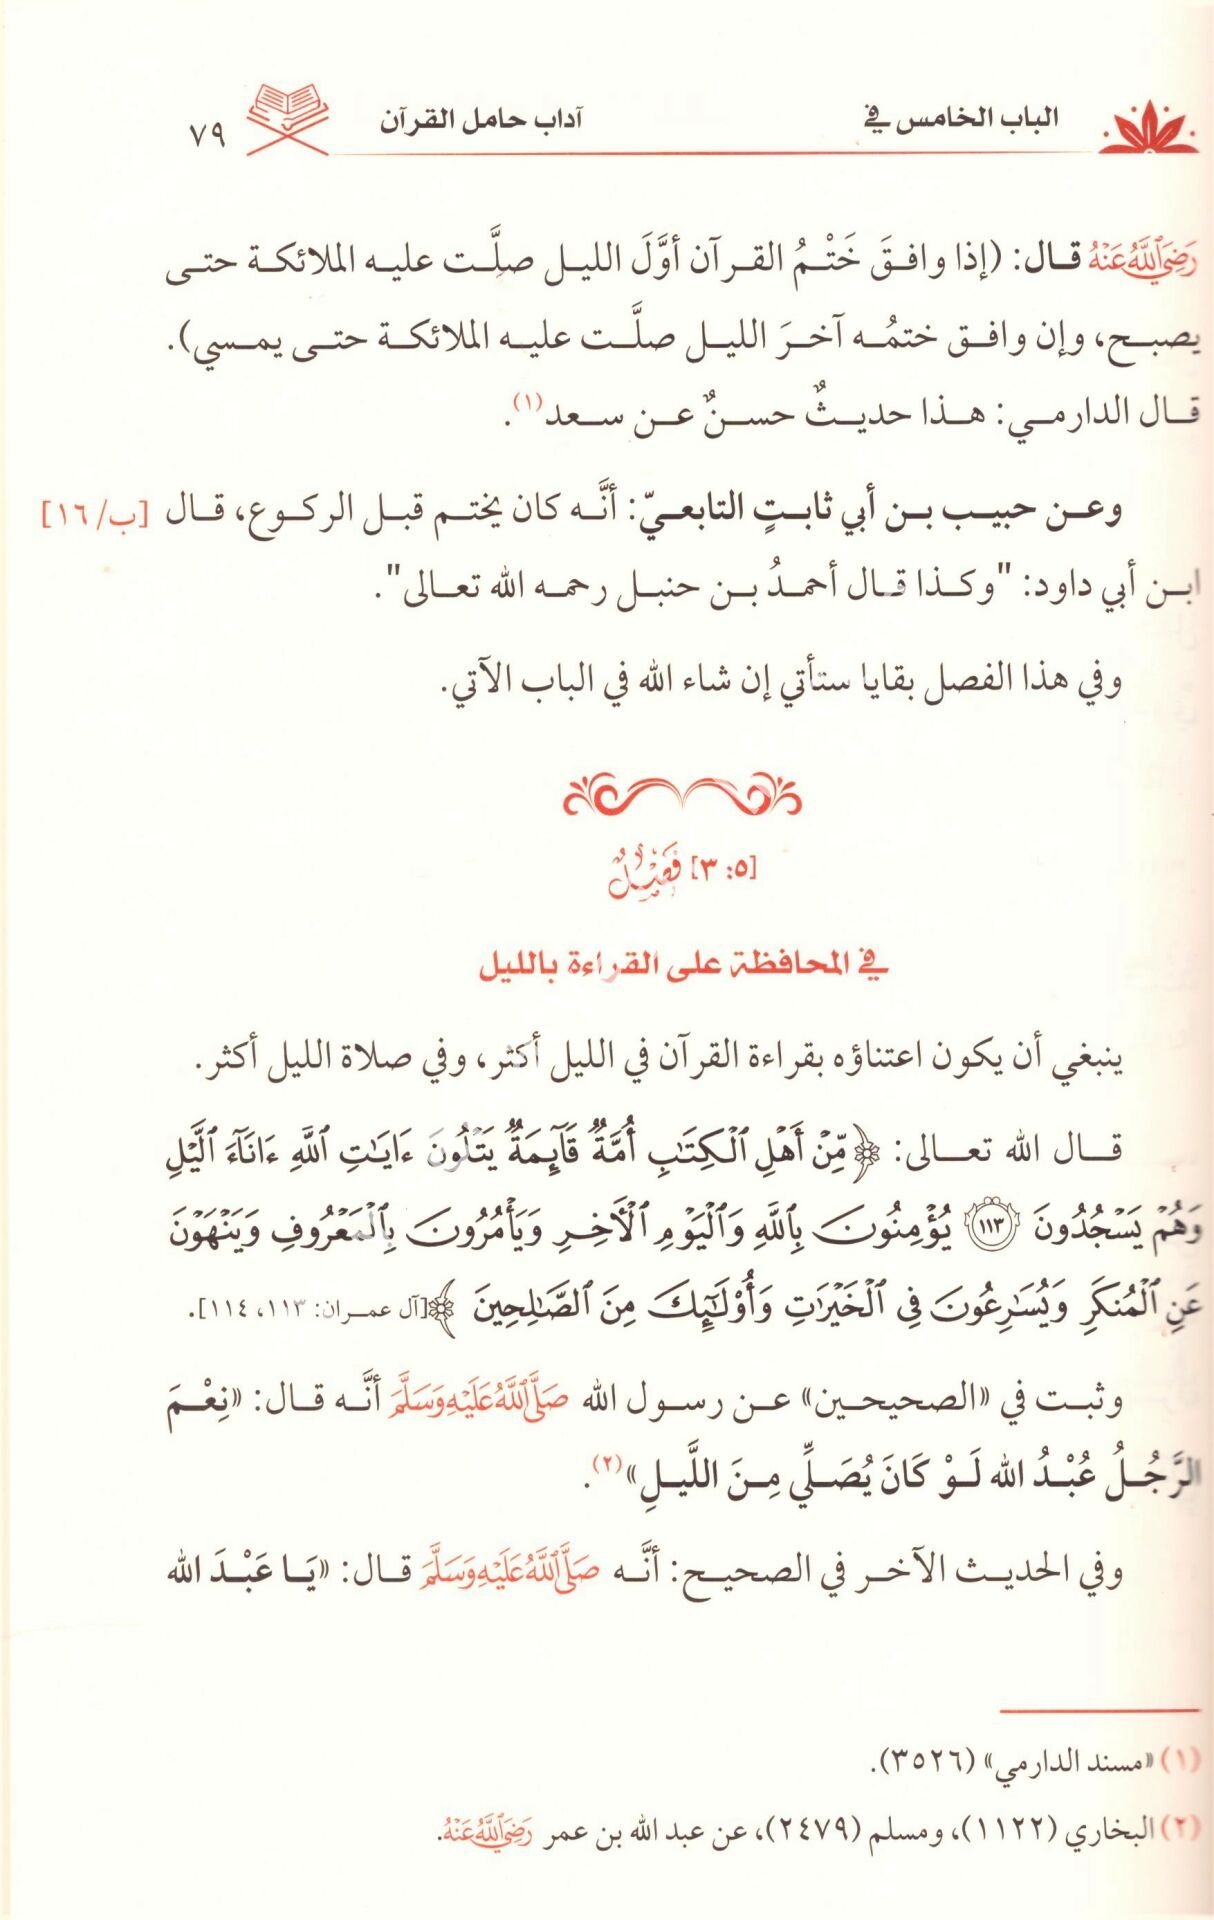 الباب الخامس في آداب حامل القرآن ٧٩
رَضِيَ ٱللَّهُ عَنْهُ قال: (إذا وافـقَ خَتْـمُ القـرآن أوَّلَ الليـل صلَّـت عليـه الملائكـة حتـى
يصبـح، وإن وافـق ختمُـه آخـرَ الليـل صلَّـت عليـه الملائكـة حتـى يمسـي).
قـال الدارمـي: هـذا حديـثٌ حسـنٌ عـن سـعد(١).
وعـن حبيـب بـن أبي ثابـتٍ التابعـيّ: أنَّـه كان يختـم قبـل الركـوع، قـال [ب/١٦]
ابـن أبي داود: "وكـذا قـال أحمـدُ بـن حنبـل رحمـه الله تعـالى".
وفي هذا الفصل بقايا ستأتي إن شاء الله في الباب الآتي.
[٥: ٣] فَصْلٌ
في المحافظة على القراءة بالليل
ينبغي أن يكون اعتناؤه بقراءة القرآن في الليل أكثر، وفي صلاة الليل أكثر.
قـال الله تعـالى: ﴿مِّنۡ أَهۡلِ ٱلۡكِتَٰبِ أُمَّةٞ قَآئِمَةٞ يَتۡلُونَ ءَايَٰتِ ٱللَّهِ ءَانَآءَ ٱلَّيۡلِ
وَهُمۡ يَسۡجُدُونَ ١١٣ يُؤۡمِنُونَ بِٱللَّهِ وَٱلۡيَوۡمِ ٱلۡأٓخِرِ وَيَأۡمُرُونَ بِٱلۡمَعۡرُوفِ وَيَنۡهَوۡنَ
عَنِ ٱلۡمُنكَرِ وَيُسَٰرِعُونَ فِي ٱلۡخَيۡرَٰتِ وَأُوْلَٰٓئِكَ مِنَ ٱلصَّٰلِحِينَ﴾ [آل عمـران: ١١٣، ١١٤].
وثبـت في «الصحيحـين» عـن رسـول الله صَلَّى ٱللَّهُ عَلَيْهِ وَسَلَّمَ أنَّـه قـال: «نِعْـمَ
الرَّجُـلُ عُبْـدُ الله لَـوْ كَانَ يُصَلِّي مِـنَ اللَّيـلِ»(٢).
وفي الحديـث الآخـر في الصحيـح: أنَّـه صَلَّى ٱللَّهُ عَلَيْهِ وَسَلَّمَ قـال: «يَـا عَبْـدَ الله
(١) «مسند الدارمي» (٣٥٢٦).
(٢) البخاري (١١٢٢)، ومسلم (٢٤٧٩)، عن عبد الله بن عمر رَضِيَ ٱللَّهُ عَنْهُ.